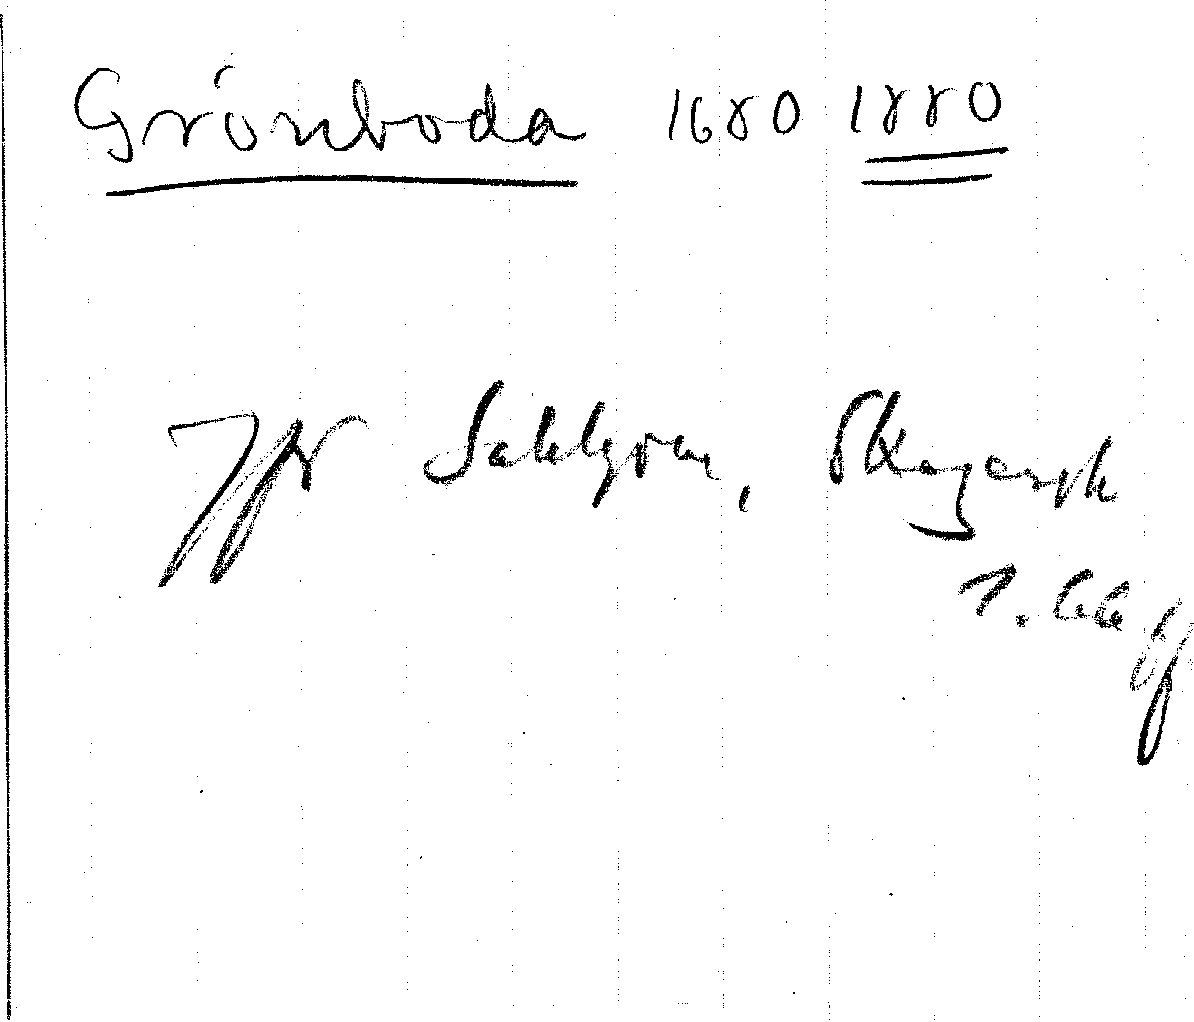 Grönboda 1680 1880
Jfr Sahlgren, Skagersh
s. 66 ff